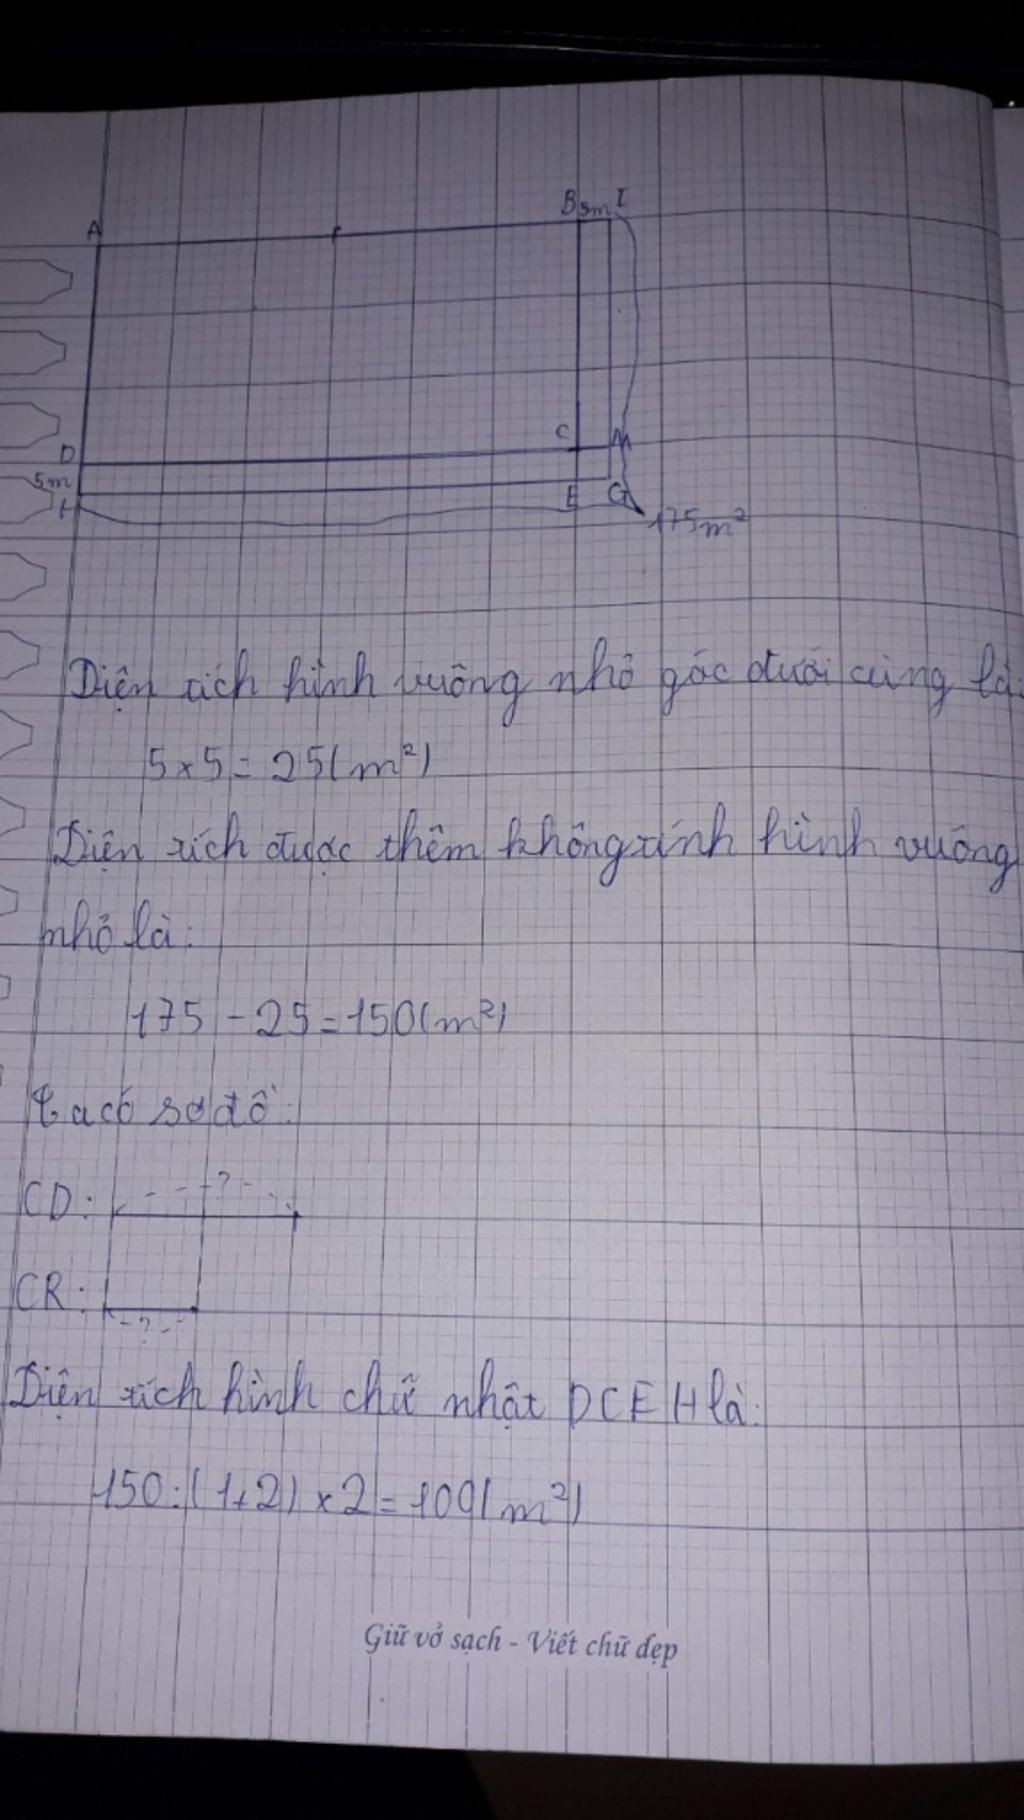 A
B 5m I
D
C M
5m
H E G
175m²
Diện tích hình vuông nhỏ góc dưới cùng là:
5 × 5 = 25 (m²)
Diện tích được thêm không tính hình vuông
nhỏ là:
175 - 25 = 150 (m²)
Ta có sơ đồ:
CD: ?
CR: ?
Diện tích hình chữ nhật DCEH là:
150 : (1+2) × 2 = 100 (m²)
Giữ vở sạch - Viết chữ đẹp